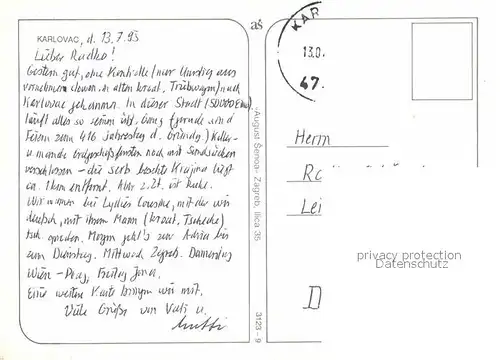 KARLOVAC, d. 13.7.95
Lieber Radko!
Gestern gut, ohne Kontrolle (nur Umstieg aus
vornehmem in alten kroat. Triebwagen) nach
Karlovac gekommen. In dieser Stadt (50000 Einw)
läuft alles so seinen (gerade sind
Feiern zum 416 Jahrestag d. Gründg.) Keller-
u manche Erdgeschoßfenster noch mit Sandsäcken
verschlossen - die serb besetzte Krajina liegt
ca. 1km entfernt. Aber z.Zt. ist Ruhe.
Wir waren bei Lydias Cousine, mit der wir
deutsch, mit ihrem Mann (Kroat, Tscheche)
tsch. reden. Morgen geht's zur Adria bis
zum Dienstag. Mittwoch Zagreb. Donnerstag
Wien - Prag, Freitag Jena.
Eine weitere Karte bringen wir mit.
Viele Grüße von Vati u.
Mutti
aš
»August Šenoa« Zagreb, Ilica 35
3123 - 9
KAR
13.0
47
Herrn
Ra
Lei
D
privacy protection
Datenschutz